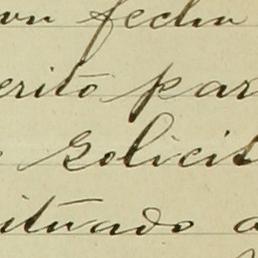 con fecha
erito par
solicit
ituado a